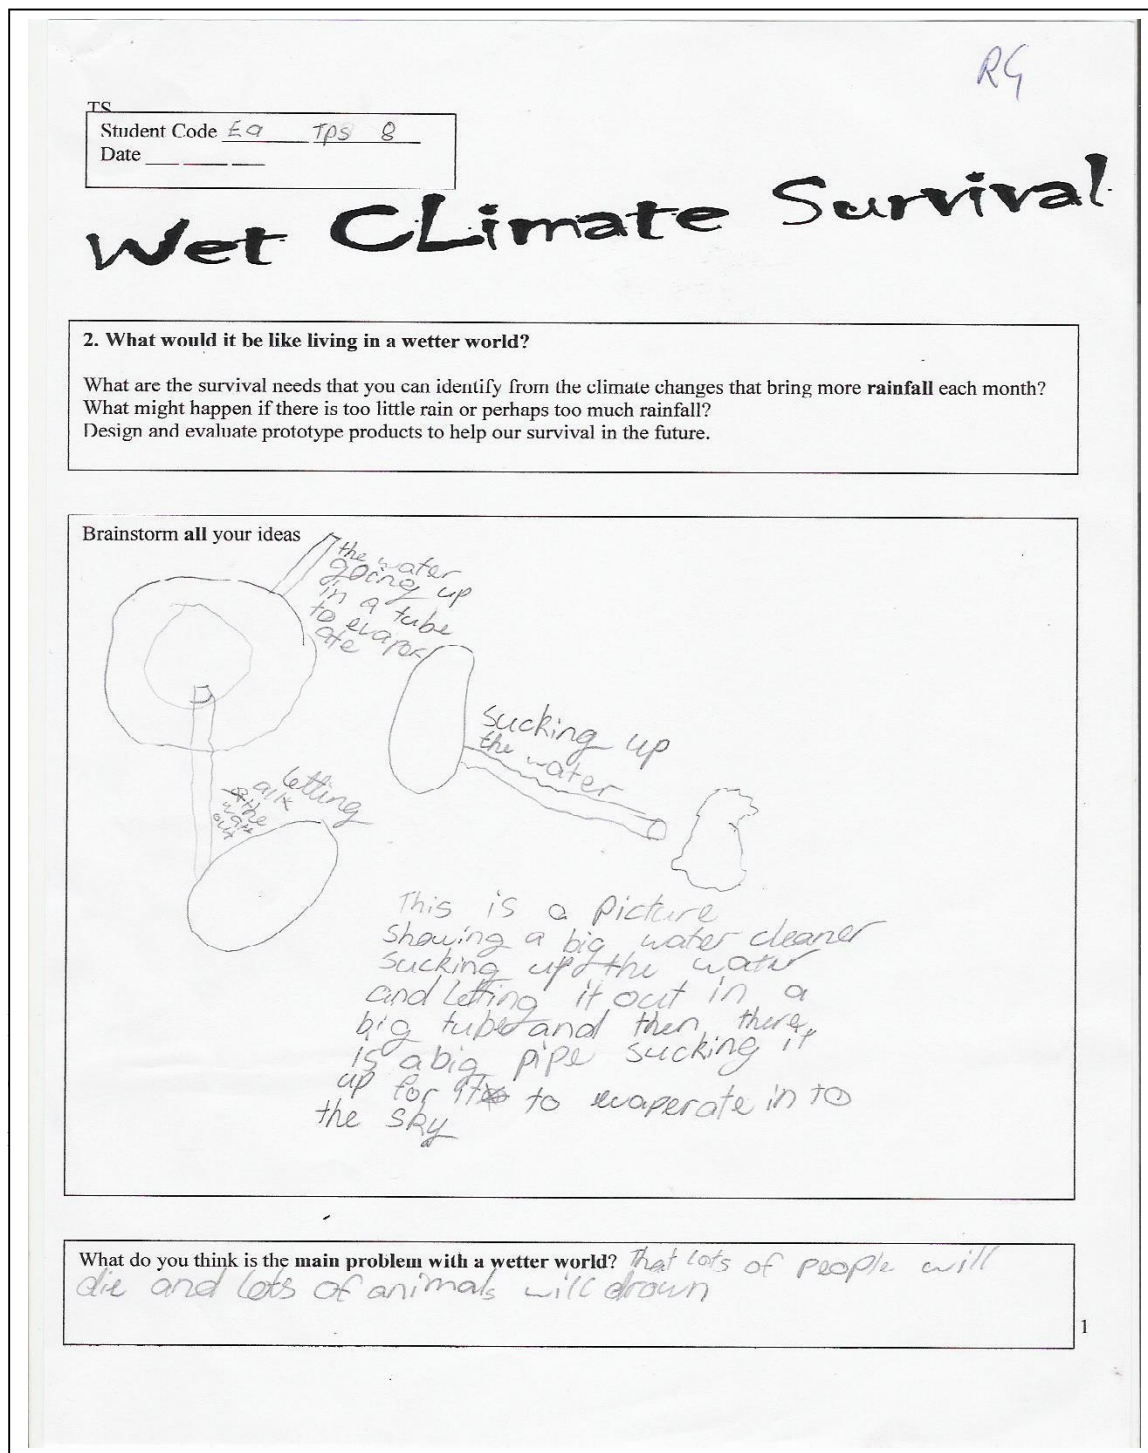 RG
TS
Student Code Ea TPS 8
Date
Wet CLimate Survival
2. What would it be like living in a wetter world?
What are the survival needs that you can identify from the climate changes that bring more rainfall each month?
What might happen if there is too little rain or perhaps too much rainfall?
Design and evaluate prototype products to help our survival in the future.
Brainstorm all your ideas
the water
going up
in a tube
to evapor
ate
sucking up
the water
letting
all
the
out
This is a Picture
showing a big water cleaner
sucking up the water
and letting it out in a
big tube and then there
is a big pipe sucking it
up for it to evaperate in to
the sky
What do you think is the main problem with a wetter world? That lots of people will
die and lots of animals will drown
1